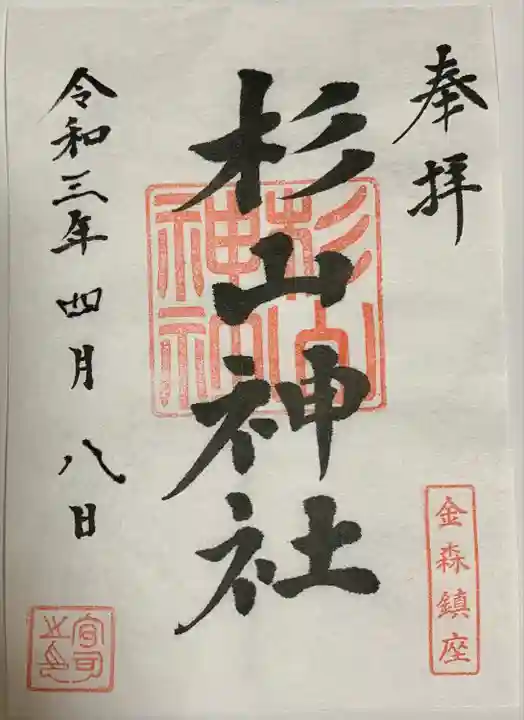 奉拝
金森鎮座
杉山神社
杉山神社
令和三年四月八日
宮司之印